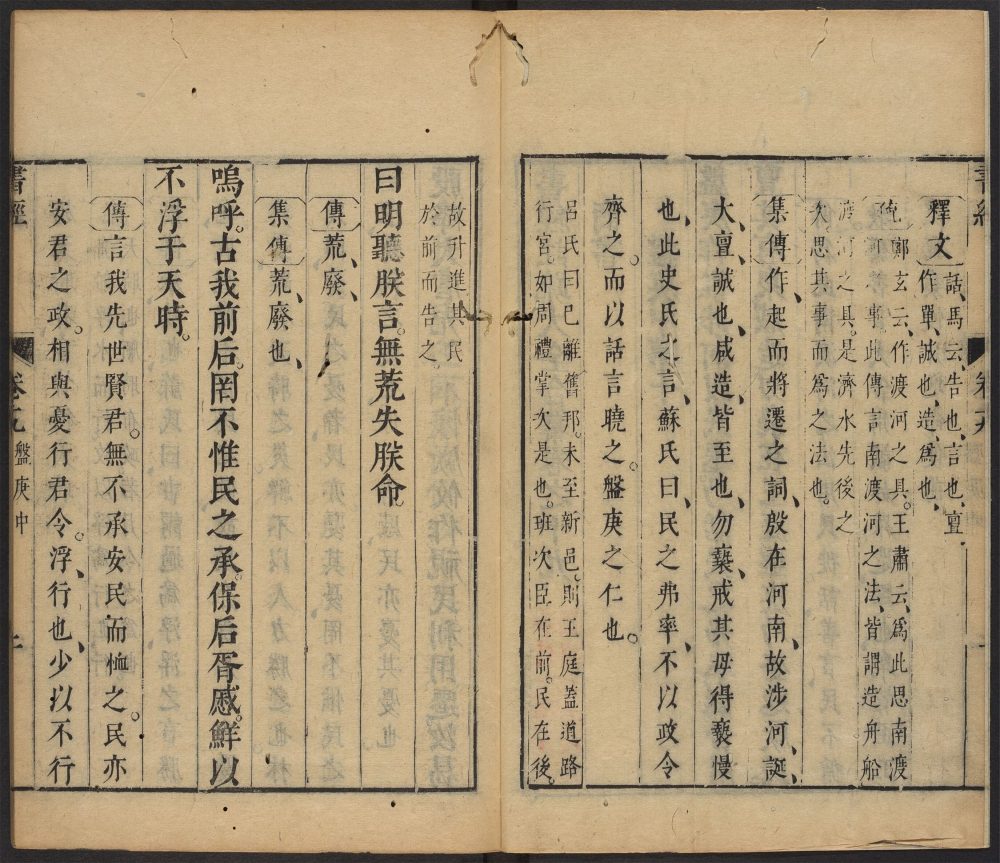 釋文
話、馬云、告也、言也、亶
作單、誠也、造、爲也、
鄭玄云、作渡河之具。王肅云、爲此思南渡
事、此傳言南渡河之法、皆謂造舟船
渡河之具。是濟水先後之
次。思其事而爲之法也。
集傳 作、起而將遷之詞、殷在河南、故涉河、誕、
大、亶、誠也、咸造、皆至也、勿褻、戒其毋得褻慢
也、此史氏之言、蘇氏曰、民之弗率、不以政令
齊之。而以話言曉之。盤庚之仁也。
呂氏曰巳離舊邦。未至新邑。則王庭蓋道路
行宮。如周禮掌次是也。班次臣在前。民在後。
故升進其民
於前而告之。
曰明聽朕言。無荒失朕命。
傳 荒、廢、
集傳 荒、廢也、
嗚呼。古我前后。罔不惟民之承。保后胥慼。鮮以
不浮于天時。
傳 言我先世賢君。無不承安民而恤之。民亦
安君之政。相與憂行君令。浮、行也、少以不行
書經
盤庚中